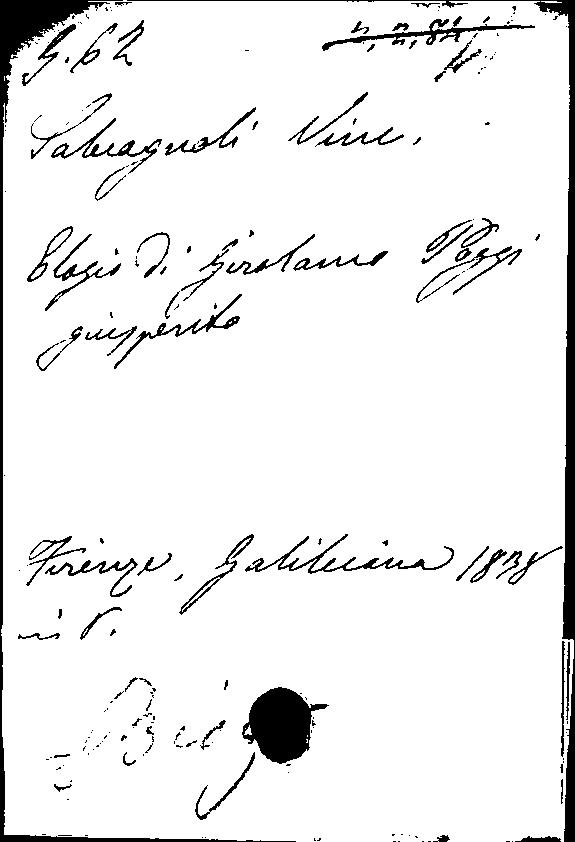 G. 62
Salvagnoli Vinc.
Elogio di Girolamo Poggi
giusperito
Firenze, Galileiana 1838
in 8.